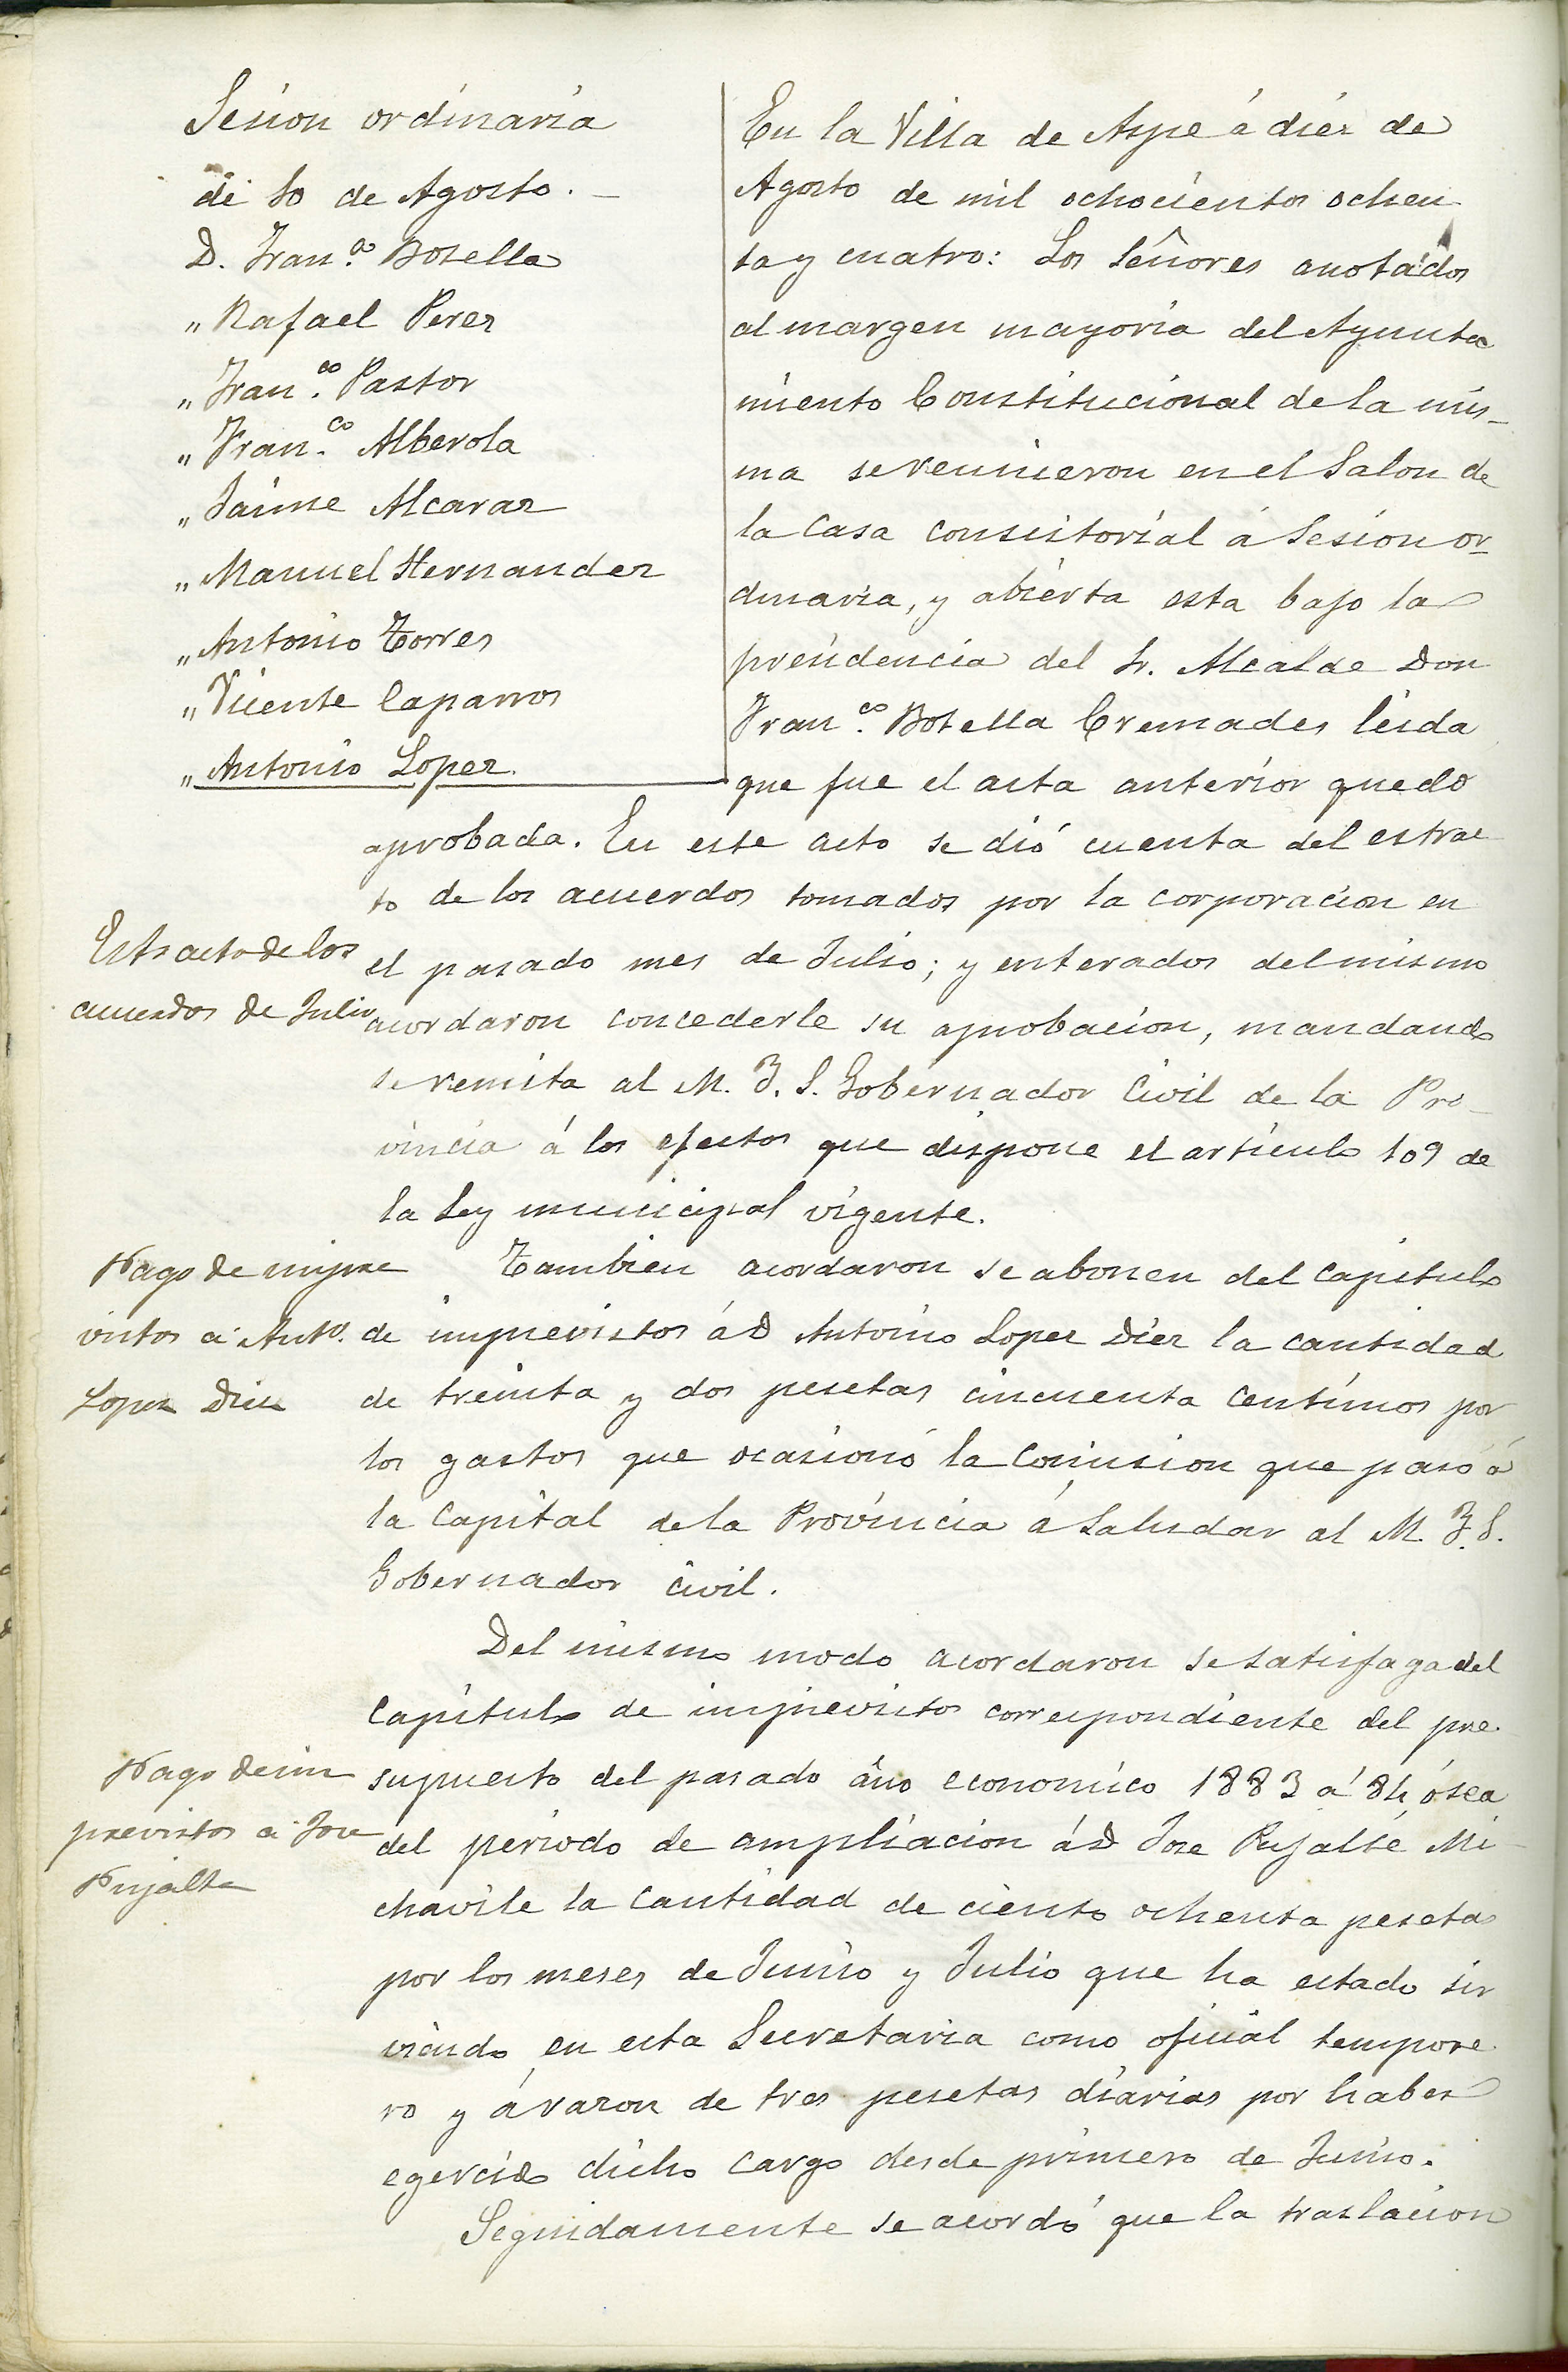 Sesion ordinaria
de 10 de Agosto.
D. Fran.co Botella
" Rafael Perez
" Fran.co Pastor
" Fran.co Alberola
" Jaime Alcaraz
" Manuel Hernandez
" Antonio Torres
" Vicente Caparros
" Antonio Lopez.
En la Villa de Aspe á diez de
Agosto de mil ochocientos ochen
ta y cuatro: Los Señores anotados
al margen mayoria del Ayunta
miento Constitucional de la mis-
ma se reunieron en el Salon de
la Casa consistorial á Sesion or-
dinaria, y abierta esta bajo la
presidencia del Sr. Alcalde Don
Fran.co Botella Cremades leida
que fue el acta anterior quedó
aprobada. En este acto se dió cuenta del estrac
to de los acuerdos tomados por la corporacion en
Estracto de los
el pasado mes de Julio; y enterados del mismo
acuerdos de Julio
acordaron concederle su aprobacion, mandando
se remita al M. I. S. Gobernador Civil de la Pro-
vincia á los efectos que dispone el articulo 109 de
la Ley municipal vigente.
Pago de impre
Tambien acordaron se abonen del Capitulo
vistos á Anto.
de imprevistos á D Antonio Lopez Diez la cantidad
Lopez Diez
de treinta y dos pesetas cincuenta centimos por
los gastos que ocasionó la Comision que pasó á
la Capital de la Provincia á Saludar al M. I. S.
Gobernador Civil.
Del mismo modo acordaron se satisfaga del
Capitulo de imprevistos correspondiente del pre-
Pago de im
supuesto del pasado año economico 1883 á 84, ó sea
previstos á Jose
del periodo de ampliacion á D Jose Pujalte Mi-
Pujalte
chavile la Cantidad de ciento ochenta pesetas
por los meses de Junio y Julio que ha estado sir
viendo en esta Secretaria como oficial tempore-
ro y á razon de tres pesetas diarias por haber
egercido dicho cargo desde primero de Junio.
Seguidamente se acordó que la traslacion